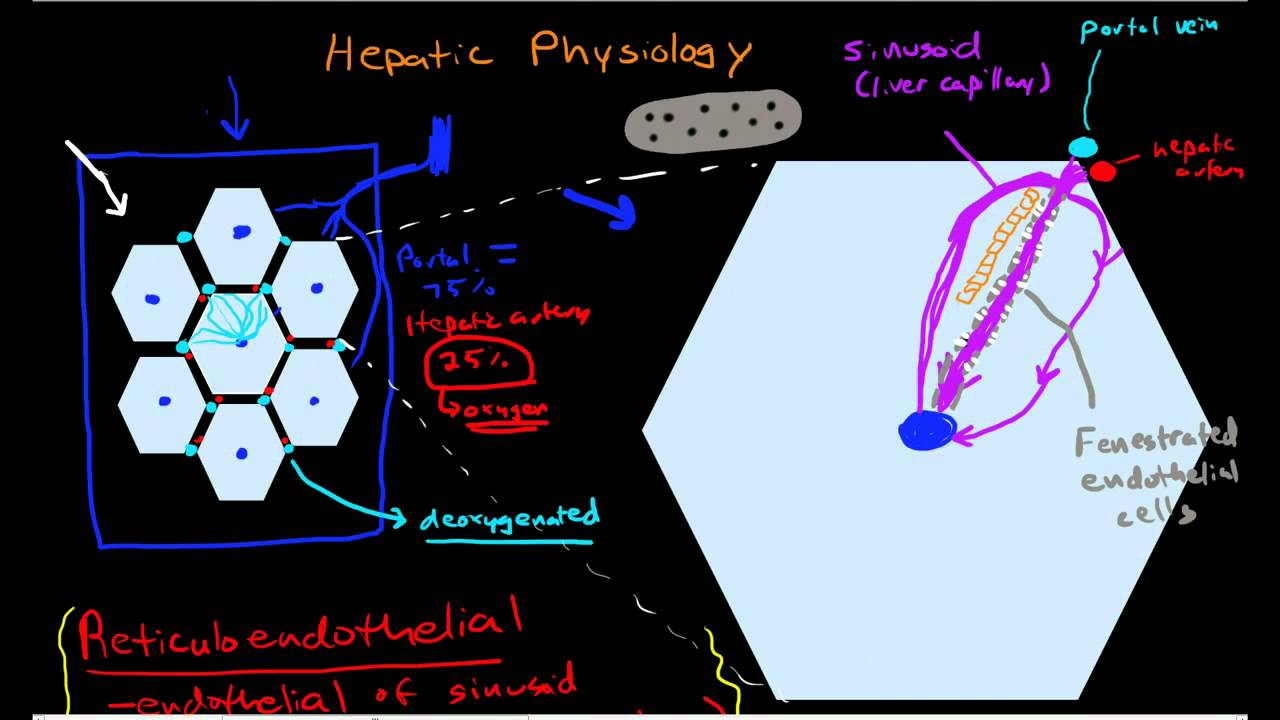 Hepatic Physiology
sinusoid
(liver capillary)
Portal vein
hepatic
artery
Portal =
75%
Hepatic artery
25%
oxygen
deoxygenated
Fenestrated
endothelial
cells
Reticuloendothelial
- endothelial of sinusoid